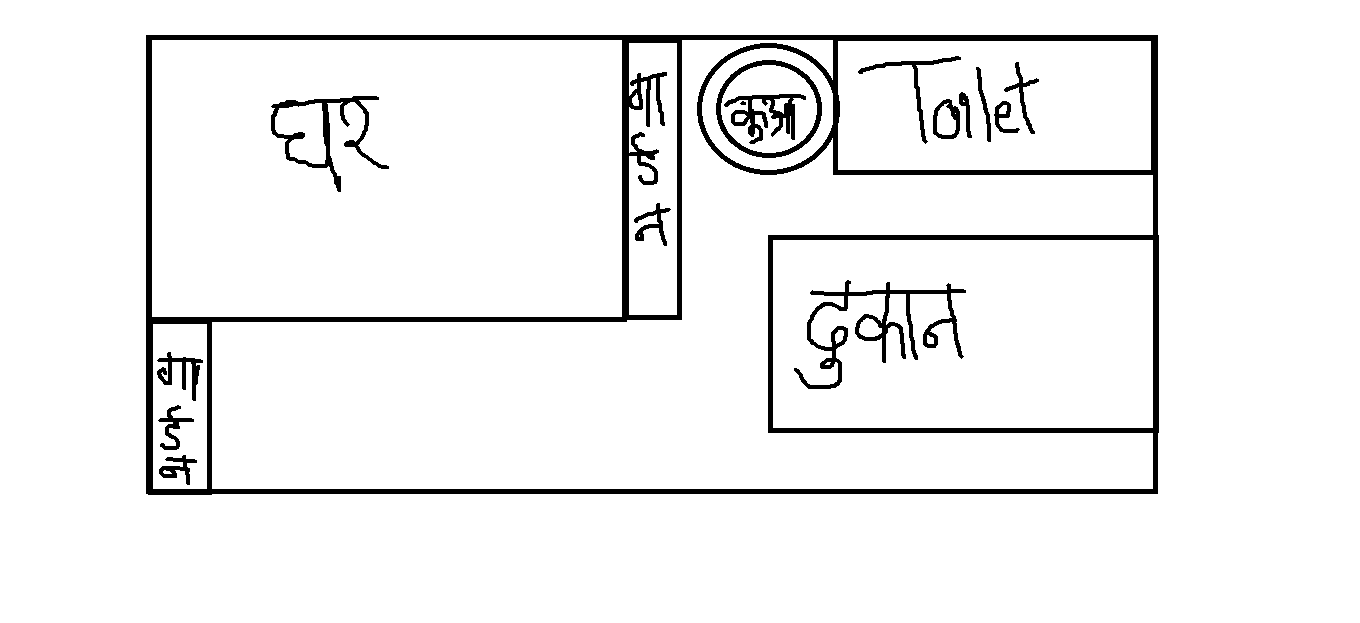 घर
गार्डन
कुआ
Toilet
दुकान
गार्डन